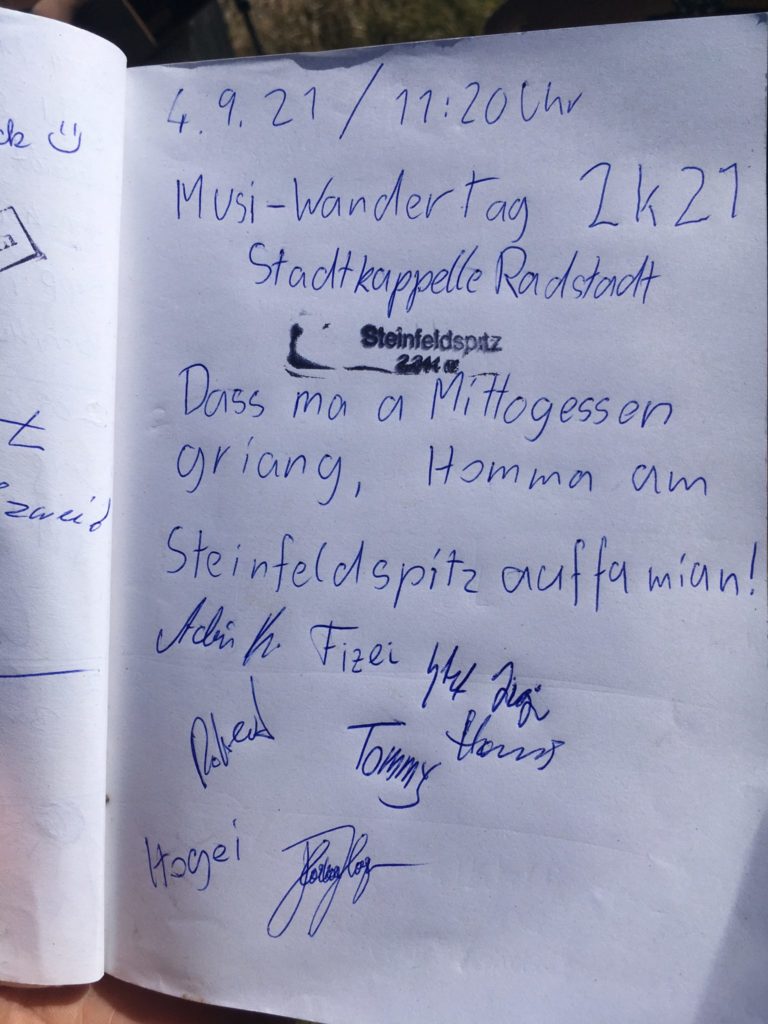 ck
4.9.21 / 11:20 Uhr
Musi-Wandertag 2k21
Stadtkappelle Radstadt
Steinfeldspitz
Dass ma a Mittogessen
griang, Homma am
Steinfeldspitz auffa mian!
Fizei
Robert
Tommy
Hogei